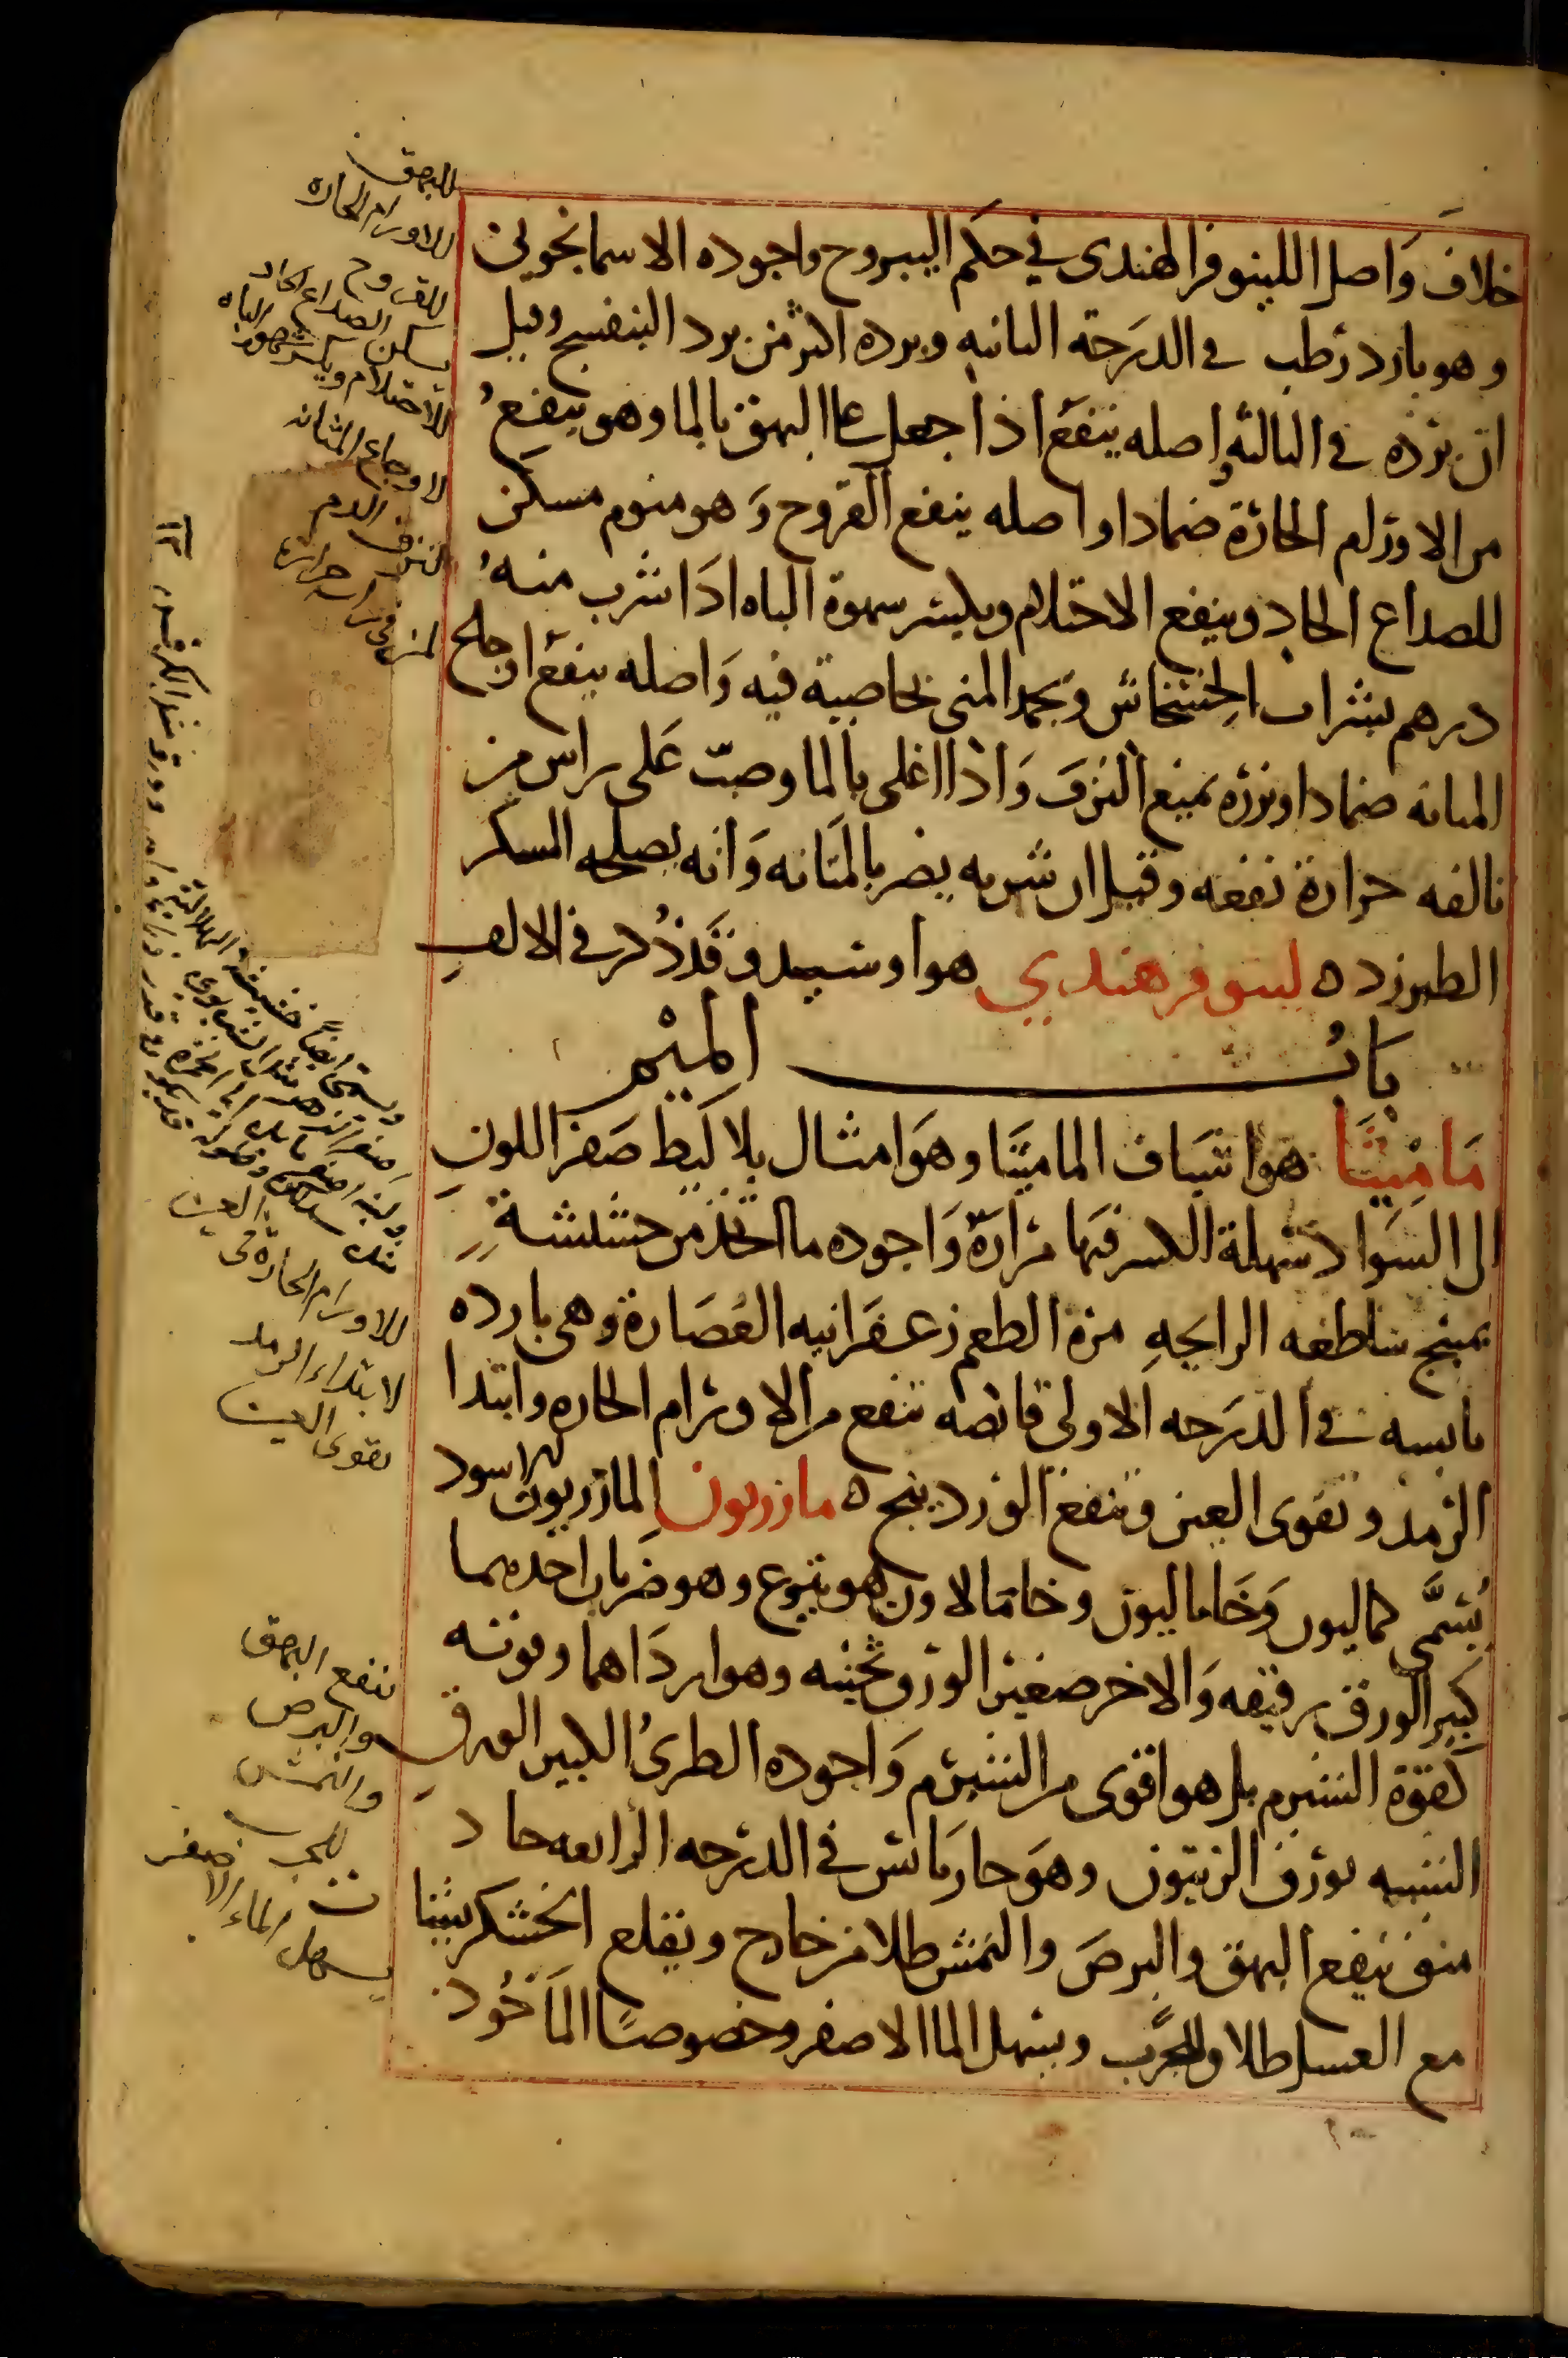 خلاف وَاصل اللينوفر الهندى في حكم اليبروح واجوده الاسمانجونى
وهو بارد رطب في الدرَجة الثانيه وبرده اكثر من برد البنفسج وقيل
ان برده في الثالثه واصله ينفع اذا جعل على البهق بالما وهو ينفع
من الاورام الحارة ضمادا واصله ينفع القروح وَهو منوم مسكن
للصداع الحاد وينفع الاحتلام ويكسر شهوة الباه اذَا شرب منه
درهم بشراب الخشخاش وَيجمد المنى بخاصية فيه وَاصله ينفع اوجاع
المثانه ضمادا وبزره يمنع النزف وَاذا اغلى بالما وصبّ عَلى راس من
نالفه حرارة نفعه وقيل ان شربه يضر بالمثَانه وَانه يصلحه السكر
الطبرزد ه لينوفر هندي هو اوشبيد وقد ذُكر في الالفِ
بَابُ الميْم
مَامِيثَا هو اشياف الماميثَا وهوَ امثال بلاليط صَفر اللونِ
الى السَوادِ سَهلة الكسر فيهَا مرَارَة وَاجوده ما اتخذ من حشيشةٍ
بمنبج ساطعه الرايحهِ مرة الطعم زعفرَانيه العُصَارة وهى بارده
يابسه في الدرَجه الاولى قابضه تنفع من الاورَام الحاره وابتدا
الرَمد وتقوى العين وتنفع الوَردينج ه مازريون المازريون الاسود
يُسَمَّى كماليون وَخَاماليون وخامالاون وهو يتوع وهو ضربان احدهما
كبير الورَق رقيقه وَالاخر صغير الورق ثخينه وهو اردَاهما وقوته
كقوة الشبرم بل هو اقوى من الشبرم وَاجوده الطرىُ الكبير الورقِ
الشبيه بورَق الزيتون وهوَ حار يَابس في الدرَجه الرابعه حاد
منق ينفع البهق والبرصَ والنمش طلا من خارج ويقلع الخشكريشا
مع العسل طلا وللجَرب ويسهل الما الاصفر وخصوصًا المَاخُوذ
للبهق
للاورام الحاره
للقروح
يسكن الصداع الحاد
للاحتلام ويكسر شهوة الباه
لاوجاع المثانه
لنزف الدم
للاورام الحارة
لابتداء الرمد
يقوى العين
ينفع البهق
والبرص
والنمش
للجرب
يسهل الماء الاصفر